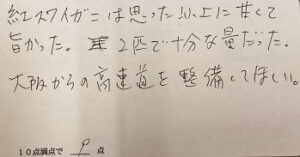 紅ズワイガニは思った以上に甘くて
旨かった。2匹で十分な量だった。
大阪からの高速道を整備してほしい。
10点満点で 9 点